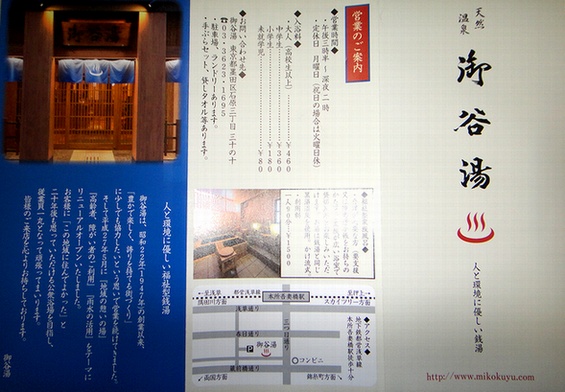 天然
温泉
御谷湯
人と環境に優しい銭湯
http://www.mikokuyu.com
営業のご案内
◆営業時間◆
・午後三時半〜深夜二時
・定休日 月曜日（祝日の場合は火曜日休）
◆入浴料◆
・大人（高校生以上）¥460
中学生 ¥360
小学生 ¥180
未就学児 ¥80
◆お問い合わせ先◆
御谷湯 東京都墨田区石原三丁目三十の
☎03・3623・1695
・駐車場、ランドリーあります。
・手ぶらセット、貸しタオル等あります。
・利用料
一人90分 ¥1500
◆アクセス◆
地下鉄都営浅草線
本所吾妻橋駅徒歩十分
←至浅草
都営浅草線
至押上→
隅田川方面
本所吾妻橋駅
スカイツリー方面
浅草通り
三つ目通り
春日通り
P
御谷湯
コンビニ
蔵前橋通り
←両国方面
錦糸町方面→
人と環境に優しい福祉型銭湯
御谷湯は、昭和22年（1947年）の創業以来、
「豊かで楽しく、誇りを持てる街づくり」
に少しでも協力したいという思いで営業を続けてきました。
そして平成27年5月に「地域の憩いの場」
「高齢者、障がい者のご利用」「雨水の活用」をテーマに
リニューアルオープンいたしました。
お客様に「この地域に住んでよかった」と
二十年後も思っていただける公衆浴場を目指し、
従業員一丸となって頑張ってまいります。
皆様のご来店を心よりお待ちしております。
御谷湯